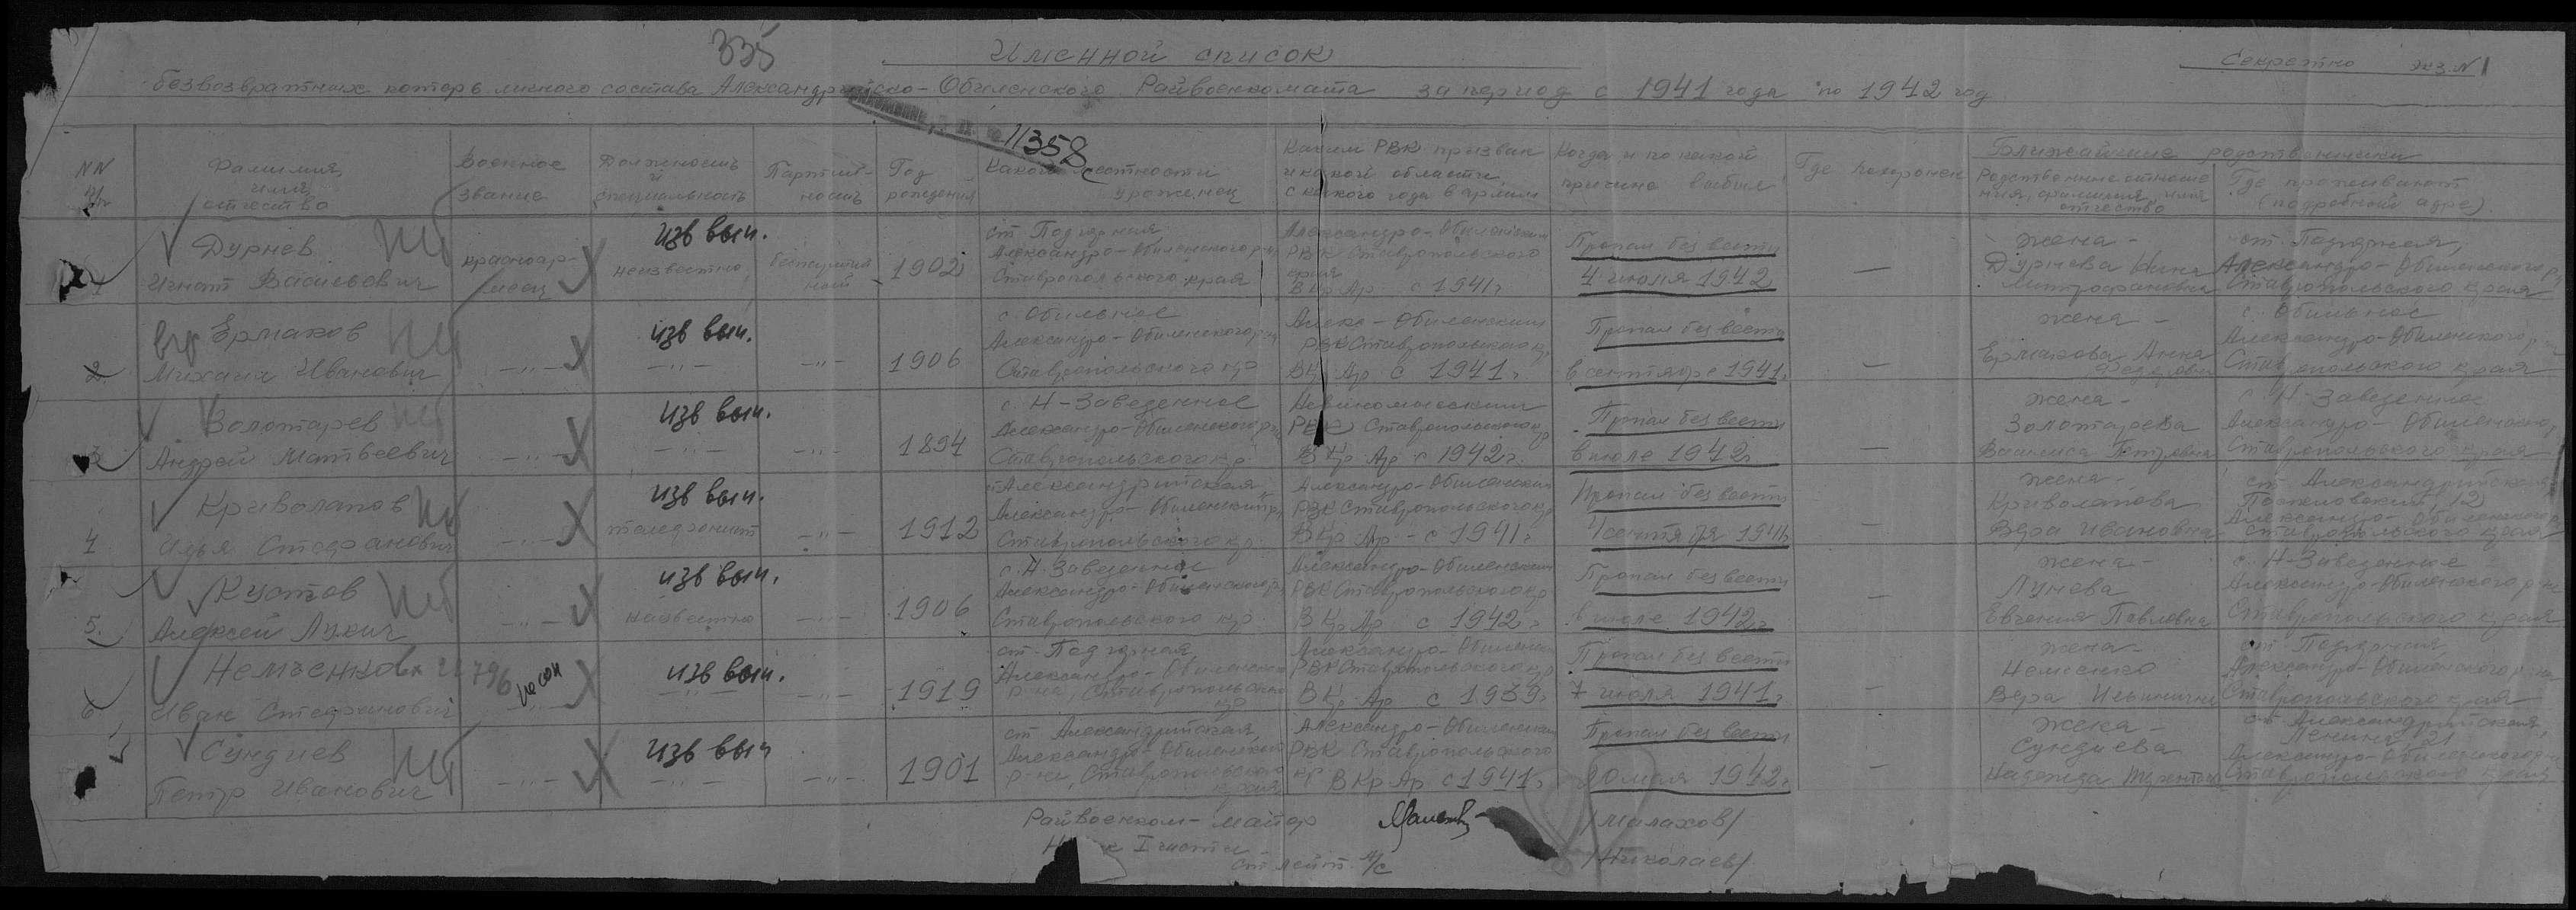 335
Именной список
Секретно экз. N 1
безвозвратных потерь личного состава Александрийско-Обиленского Райвоенкомата за период с 1941 года по 1942 год
11358
NN п/п
Фамилия имя отчество
Военное звание
Должность и специальность
Партийность
Год рождения
Какой местности уроженец
Каким РВК призван и какой области, с какого года в армии
Когда и по какой причине выбыл
Где похоронен
Ближайшие родственники
Родственные отношения, фамилия, имя отчество
Где проживают (подробный адрес)
1
Дурнев
Игнат Васильевич
красноармеец
изв выч.
неизвестно
беспартийный
1902
ст Подгорная
Александро-Обиленского р-на
Ставропольского края
Александро-Обиленским
РВК Ставропольского
края
В Кр. Ар. с 1941 г.
Пропал без вести
4 июля 1942
—
жена -
Дурнева Нина
Митрофановна
ст. Подгорная,
Александро-Обиленского р-на
Ставропольского края
2
Ермаков
Михаил Иванович
—„—
изв выч.
—„—
—„—
1906
с. Обильное
Александро-Обиленского р-на
Ставропольского кр
Алекс-Обиленским
РВК Ставропольского кр.
В Кр. Ар с 1941 г.
Пропал без вести
в сентябре 1941 г.
—
жена -
Ермакова Анна
с. Обильное
Александро-Обиленского р-на
Ставропольского края
3
Золотарев
Андрей Матвеевич
—„—
изв выч.
—„—
—„—
1894
с. Н-Заведенное
Александро-Обиленского р-на
Ставропольского кр.
РВК Ставропольского кр
В Кр. Ар с 1942 г.
Пропал без вести
в июле 1942 г.
—
жена -
Золотарева
Василиса Петровна
с Н-Заведенное
Александро-Обиленского р
Ставропольского края
4
Криволапов
Илья Стефанович
—„—
изв выч.
телефонист
—„—
1912
ст Александрийская
Александро-Обиленский р
Ставропольского кр.
Александро-Обиленским
РВК Ставропольского кр
В Кр. Ар - с 1941 г.
Пропал без вести
4 сентября 1941 г.
—
жена -
Криволапова
Вера Ивановна
ст Александрийская
12
Александро-Обиленского р
Ставропольского края
5.
Кустов
Алексей Лукич
—„—
изв выч.
неизвестно
—„—
1906
с. Н. Заведенное
Александро-Обиленского р-на
Ставропольского кр.
Александро-Обиленским
РВК Ставропольского кр
В Кр. Ар с 1942 г.
Пропал без вести
в июле 1942 г.
—
жена -
Лунева
Евгения Павловна
с. Н-Заведенное
Александро-Обиленского р-на
Ставропольского края
6
Немченко
Иван Стефанович
изв выч.
—„—
1919
ст. Подгорная
Александро-Обиленского
р-на, Ставропольского
кр
Александро-Обиленским
РВК Ставропольского кр
В Кр. Ар с 1939 г.
Пропал без вести
7 июля 1941 г.
—
жена -
Немченко
Вера Ильинична
ст Подгорная,
Александро-Обиленского р-на
Ставропольского края
Сундиев
Петр Иванович
—„—
изв выч
—„—
—„—
1901
ст Александрийская,
Александро-Обиленского
р-на, Ставропольского
края
Александро-Обиленским
РВК Ставропольского
кр В Кр Ар с 1941 г.
Пропал без вести
20 мая 1942 г.
—
жена -
Сундиева
Надежда
ст. Александрийская,
Ленина 21
Александро-Обиленского р-на
Ставропольского края
Райвоенком - майор /Малахов/
I части
ст лейт. а/с /Николаев/